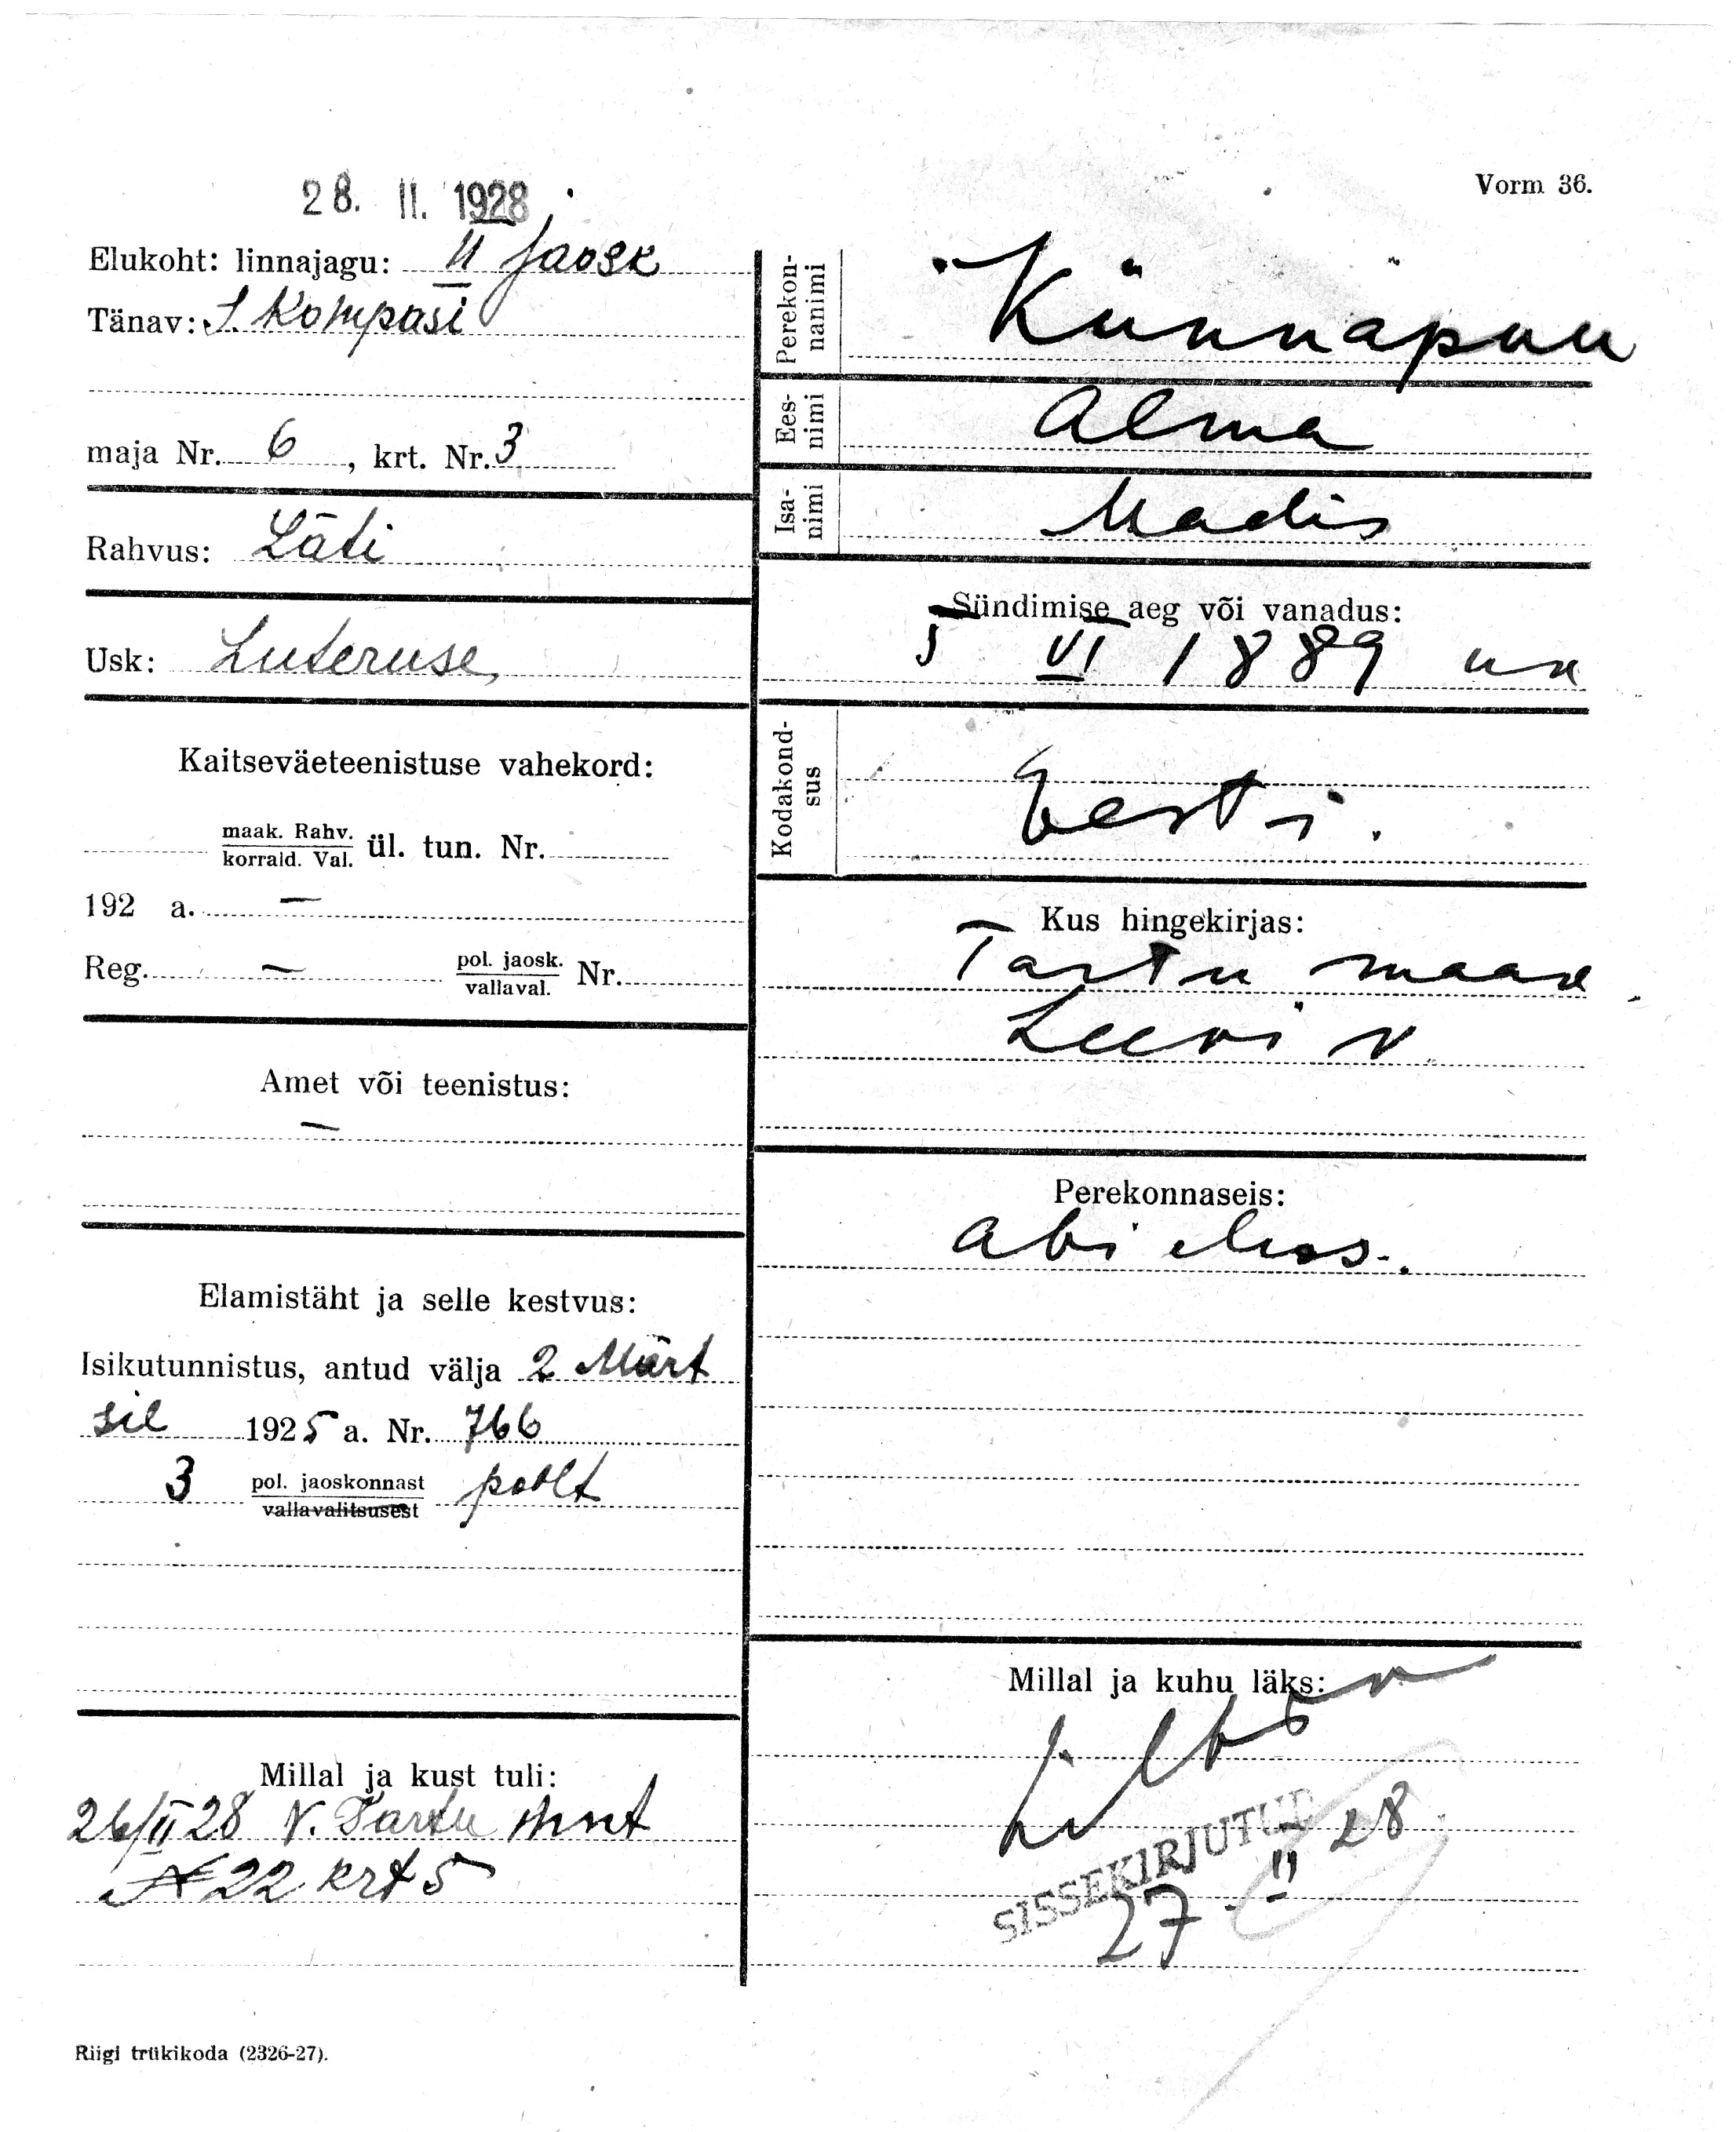 Vorm 36.
28. II. 1928
Elukoht: linnajagu: II jaosk
Tänav: S. Kompasi
maja Nr. 6, krt. Nr. 3
Rahvus: Läti
Usk: Luteruse
Kaitseväeteenistuse vahekord:
maak. Rahv.
korrald. Val. ül. tun. Nr.
192 a. —
Reg. — pol. jaosk.
vallaval. Nr.
Amet või teenistus:
—
Elamistäht ja selle kestvus:
Isikutunnistus, antud välja 2 Märt
sil 1925 a. Nr. 766
3 pol. jaoskonnast poolt
vallavalitsusest
Millal ja kust tuli:
26/II 28 V. Tartu mnt
N 22 krt 5
Perekon-
nanimi
Künnapuu
Ees-
nimi
Alma
Isa-
nimi
Madis
Sündimise aeg või vanadus:
5 VI 1889
Kodakond-
sus
Eesti.
Kus hingekirjas:
Tartu maak
Leevi v.
Perekonnaseis:
abielus.
Millal ja kuhu läks:
SISSEKIRJUTUD
27 - II 28
Riigi trükikoda (2326-27).